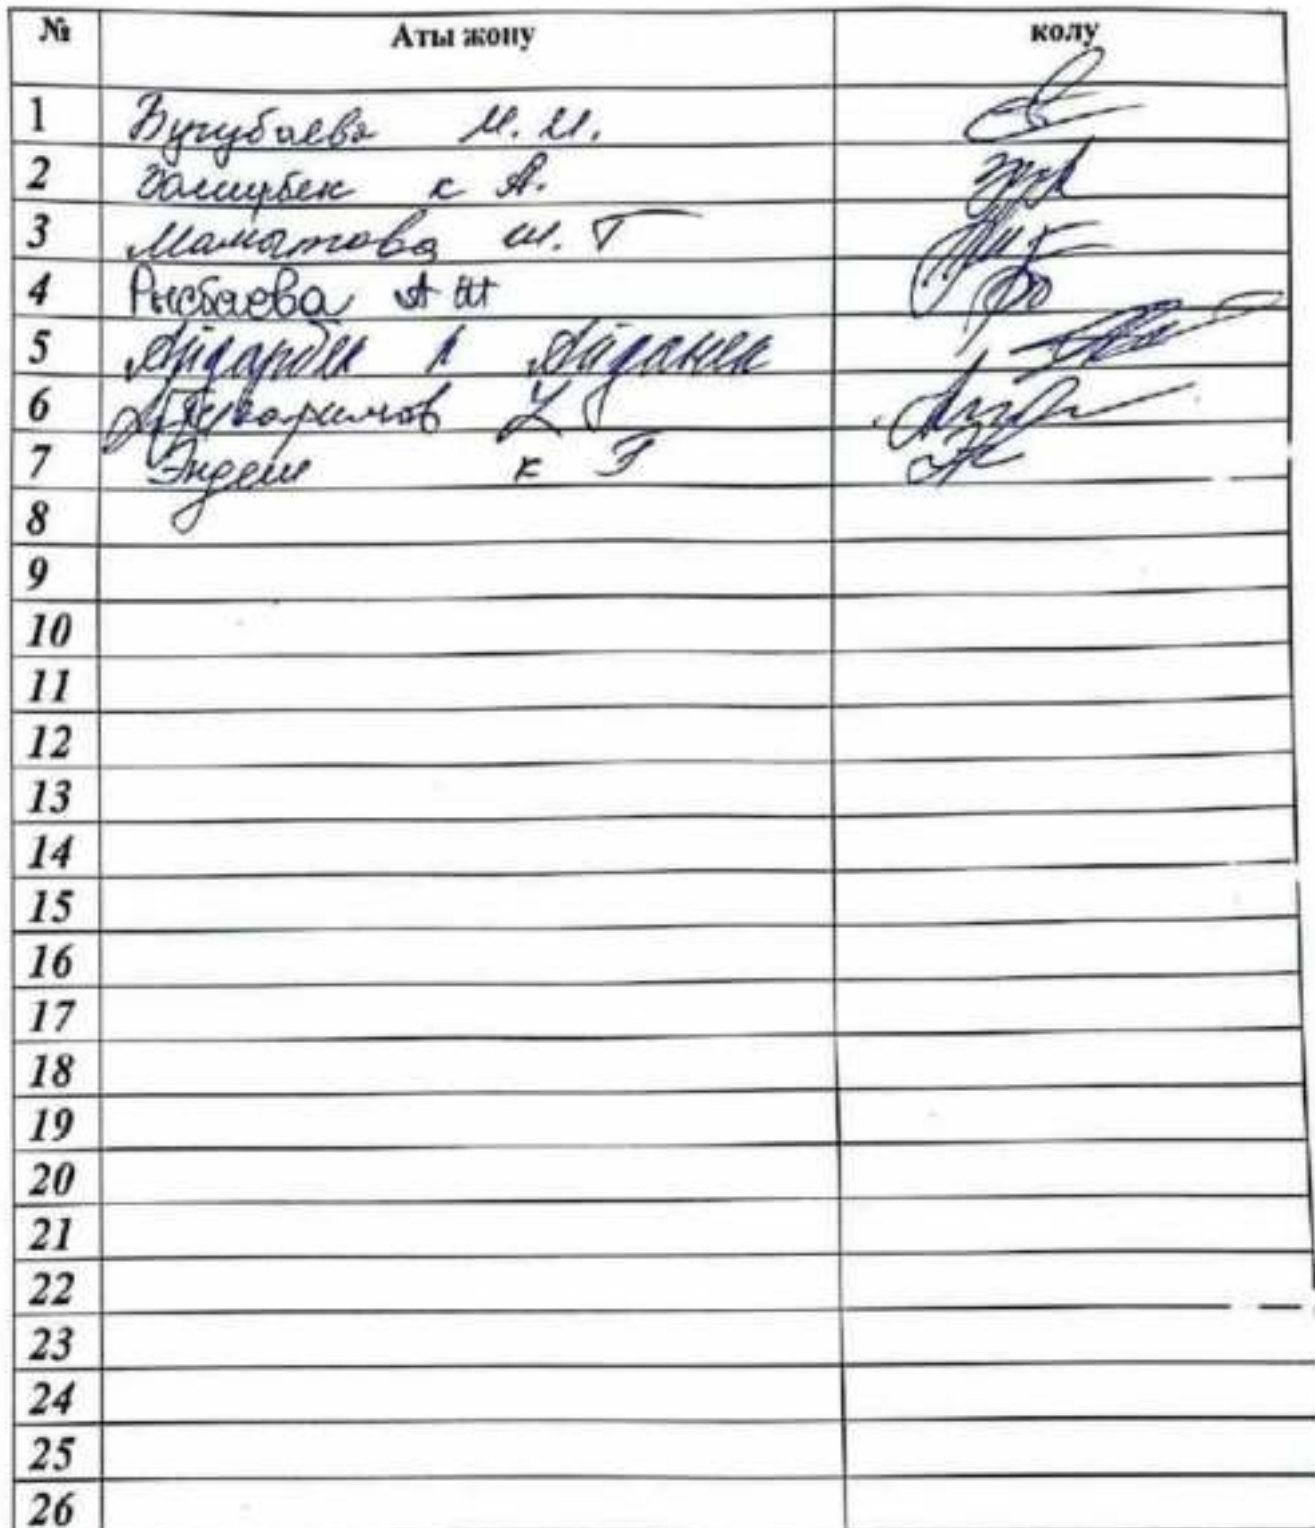 № Аты жону колу
1 Бугубаева М. И.
2 к А.
3 Маматова Ш. Т
4 Рысбаева А Ш
5 Айдарбек к Айданек
6
7 Эндеш к Э
8
9
10
11
12
13
14
15
16
17
18
19
20
21
22
23
24
25
26